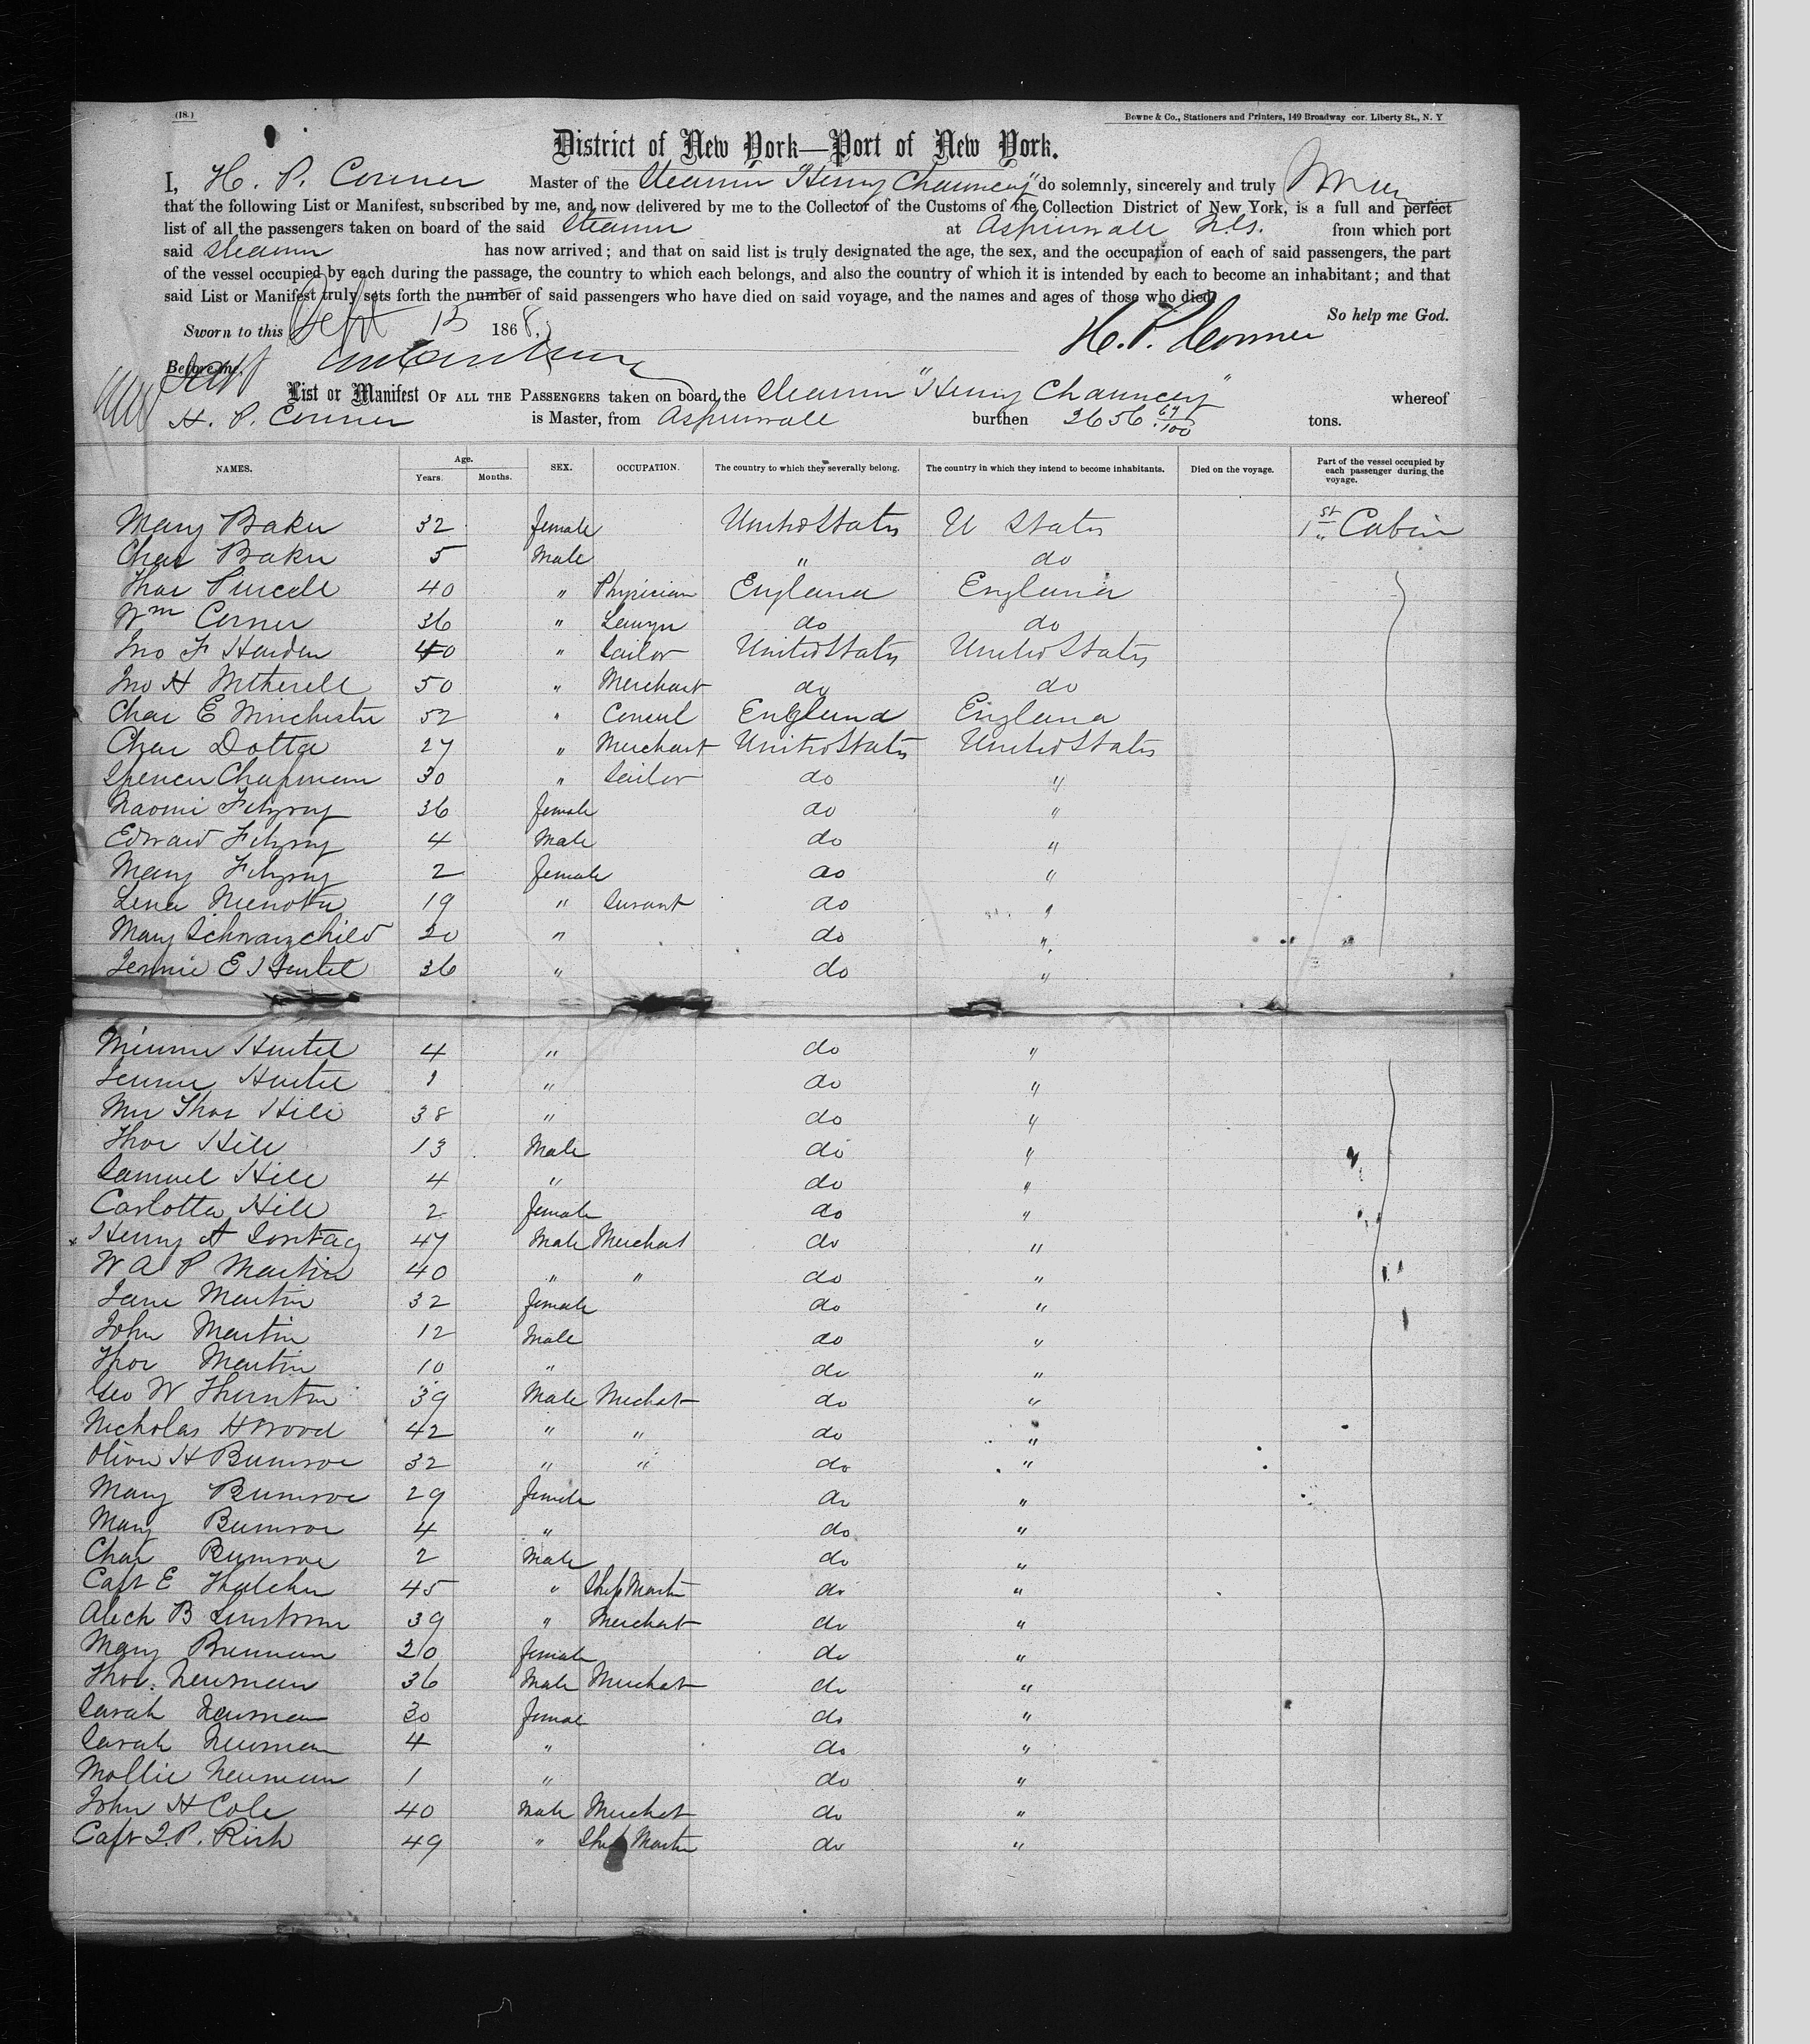 (18.)
Bowne & Co., Stationers and Printers, 149 Broadway cor. Liberty St., N. Y
District of New York—Port of New York.
I, H. P. Conner Master of the Steamer "Henry Chauncey" do solemnly, sincerely and truly
that the following List or Manifest, subscribed by me, and now delivered by me to the Collector of the Customs of the Collection District of New York, is a full and perfect
list of all the passengers taken on board of the said Steamer at Aspinwall from which port
said Steamer has now arrived; and that on said list is truly designated the age, the sex, and the occupation of each of said passengers, the part
of the vessel occupied by each during the passage, the country to which each belongs, and also the country of which it is intended by each to become an inhabitant; and that
said List or Manifest truly sets forth the number of said passengers who have died on said voyage, and the names and ages of those who died.
So help me God.
Sworn to this Sept 13 1868. H. P. Conner
Before me,
List or Manifest OF ALL THE PASSENGERS taken on board the Steamer "Henry Chauncey" whereof
H. P. Conner is Master, from Aspinwall burthen 2656 67/100 tons.
NAMES. Age. Years. Months. SEX. OCCUPATION. The country to which they severally belong. The country in which they intend to become inhabitants. Died on the voyage. Part of the vessel occupied by each passenger during the voyage.
Mary Baker 32 female United States U States 1st Cabin
Chas Baker 5 Male " do
Thos Purcell 40 " Physician England England
Wm Corner 36 " Lawyer do do
Jno F Harden 40 " Sailor United States United States
Jno H Witherell 50 " Merchant do do
Chas E Winchester 52 " Consul England England
Chas Dotta 27 " Merchant United States United States
Spencer Chapman 30 " Sailor do "
Naomi Fitzroy 36 female do "
Edward Fitzroy 4 Male do "
Mary Fitzroy 2 female do "
Lena 19 " Servant do "
Mary Schwarzchild 20 " do "
Jennie E Hertel 36 " do "
Minnie Hertel 4 " do "
Jennie Hertel 1 " do "
Mrs Thos Hill 38 " do "
Thos Hill 13 Male do "
Samuel Hill 4 " do "
Carlotta Hill 2 female do "
Henry A Sontag 47 Male Merchat do "
W A P Martin 40 " " do "
Jane Martin 32 female do "
John Martin 12 Male do "
Thos Martin 10 " do "
Geo W Thornton 39 Male Mechat do "
Nicholas H Wood 42 " " do "
Oliver H Bumroe 32 " " do "
Mary Bumroe 29 female do "
Mary Bumroe 4 " do "
Chas Bumroe 2 Male do "
Capt E Thatcher 45 " Ship Master do "
Alech B 39 " Merchat do "
Mary Brennan 20 female do "
Thos. Newman 36 Male Merchat do "
Sarah Newman 30 female do "
Sarah Newman 4 " do "
Mollie Newman 1 " do "
John H Cole 40 Male Merchat do "
Capt J. P. Rich 49 " Ship Master do "